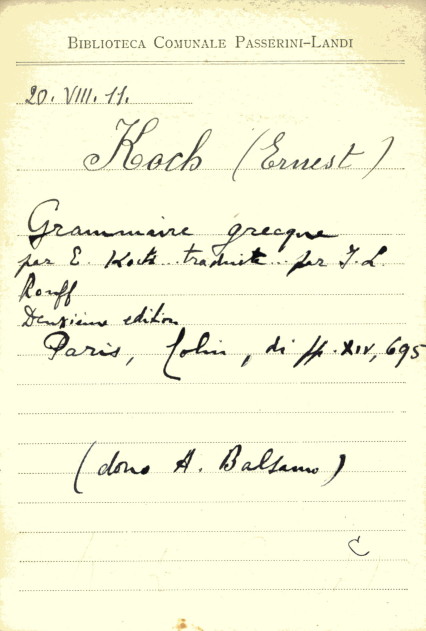 BIBLIOTECA COMUNALE PASSERINI-LANDI
20. VIII. 11.
Koch (Ernest)
Grammaire grecque
par E. Koch traduite par J. L.
Rouff
Deuxième edition
Paris, Colin, di pp. XIV, 695
(dono A. Balsamo)
C